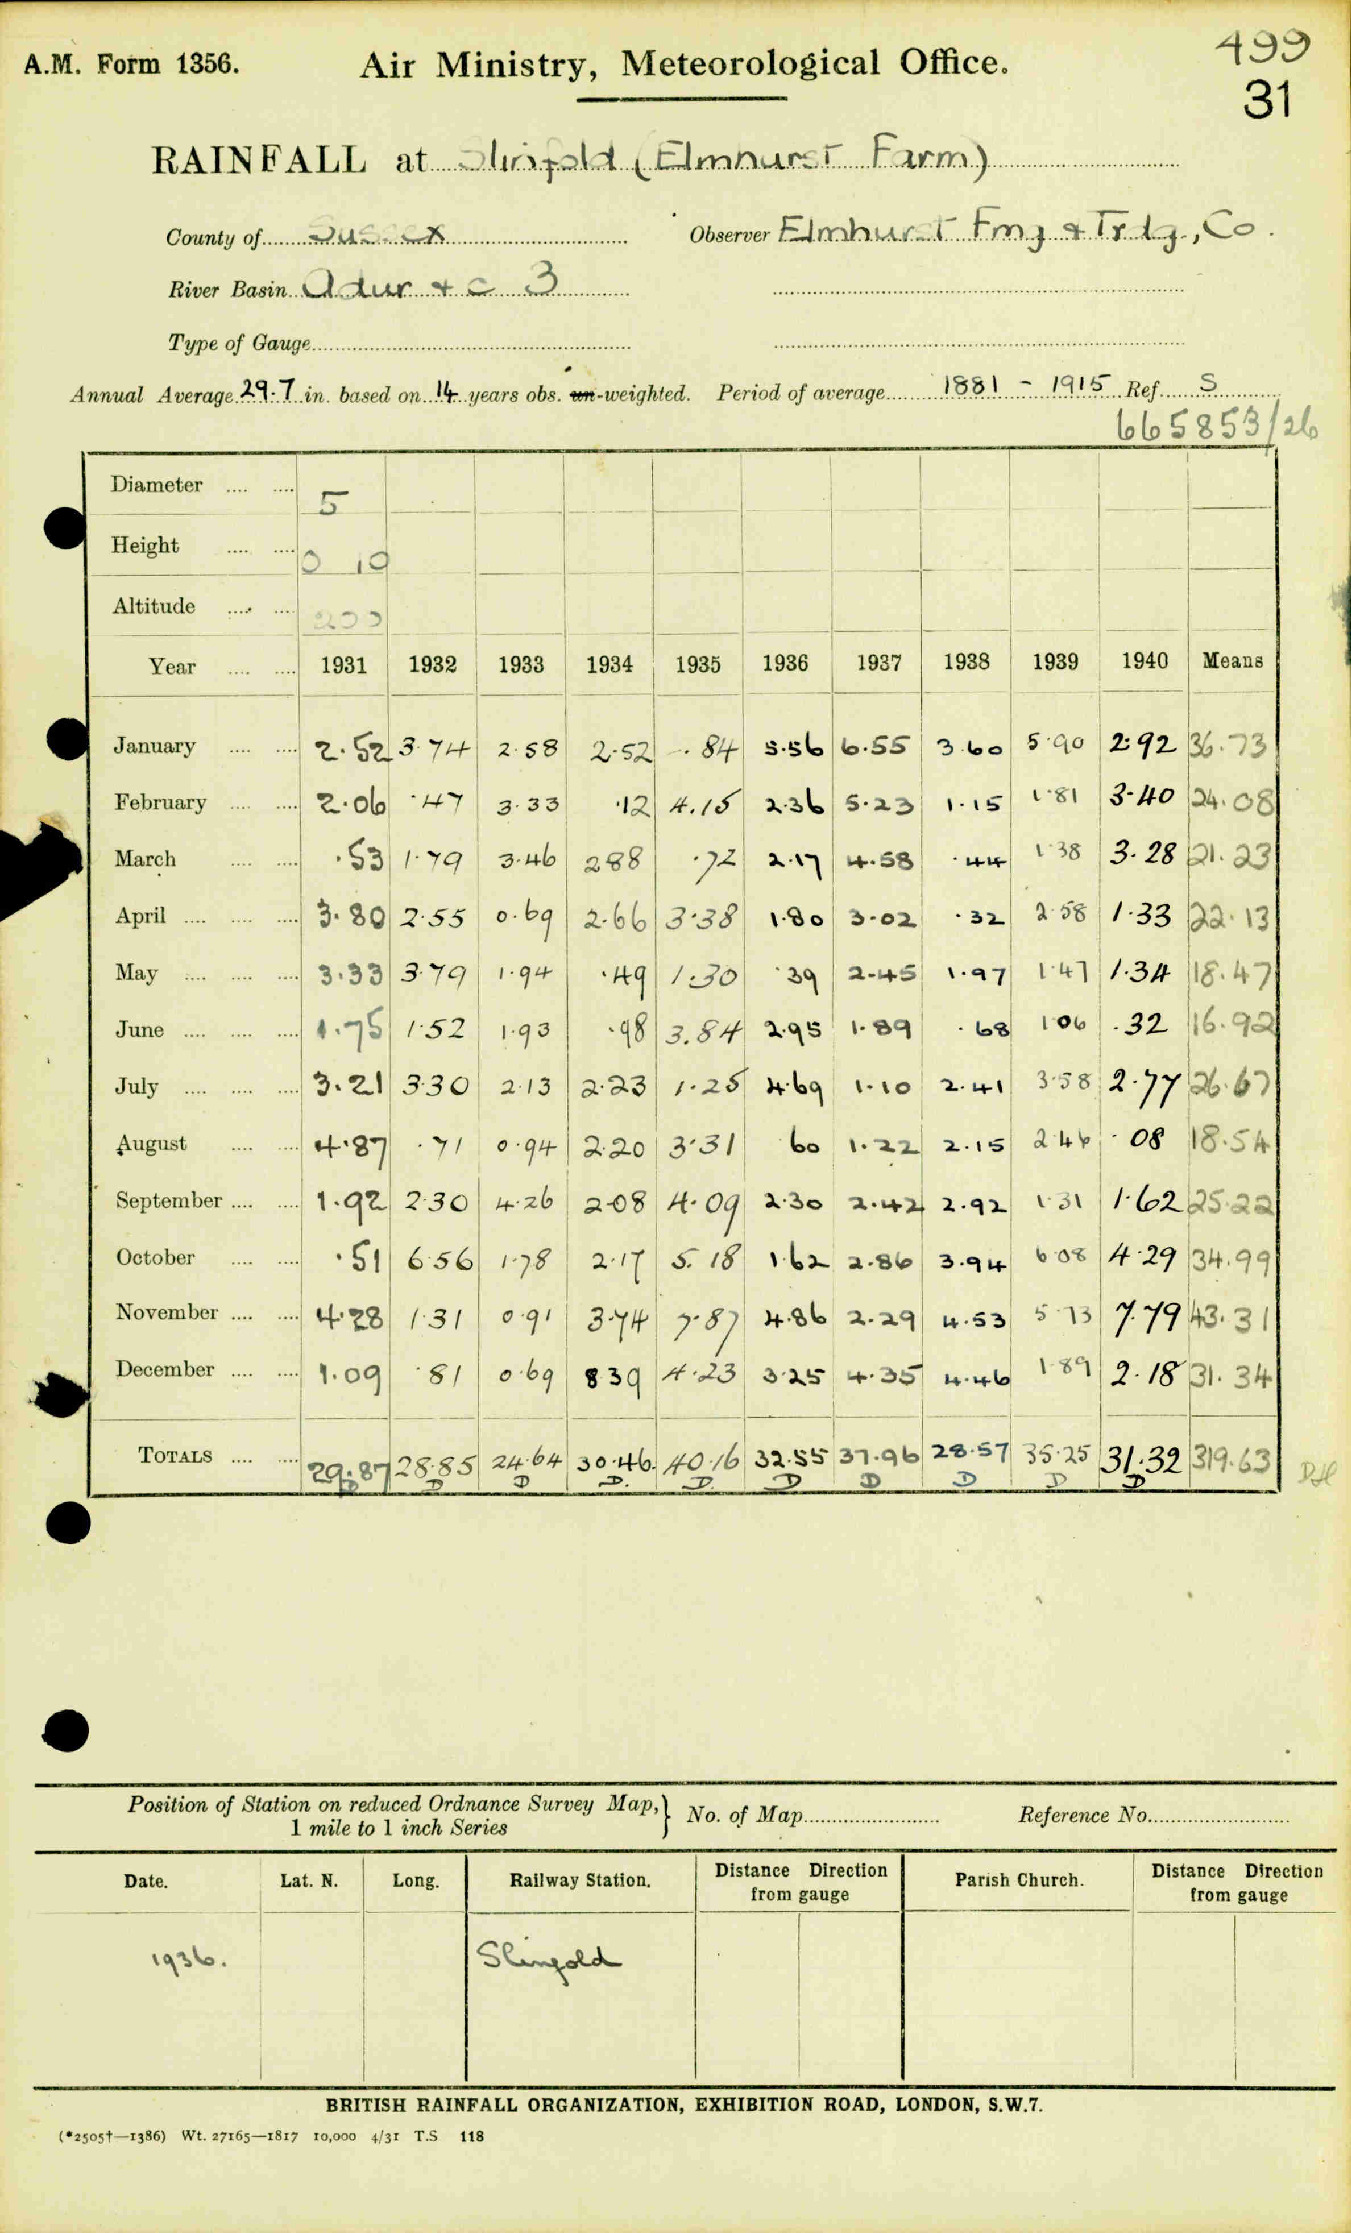 499
A.M. Form 1356. Air Ministry, Meteorological Office.
31
RAINFALL at Slinfold (Elmhurst Farm)
County of Sussex Observer Elmhurst Fmg & Trdg, Co.
River Basin Adur & c 3
Type of Gauge
Annual Average 29.7 in. based on 14 years obs. un-weighted. Period of average 1881 - 1915 Ref. S
665853/26
Diameter .... .... 5
Height .... .... 0 10
Altitude .... .... 200
Year .... .... 1931 1932 1933 1934 1935 1936 1937 1938 1939 1940 Means
January .... .... 2.52 3.74 2.58 2.52 .84 5.56 6.55 3.60 5.90 2.92 36.73
February .... .... 2.06 .47 3.33 .12 4.15 2.36 5.23 1.15 1.81 3.40 24.08
March .... .... .53 1.79 3.46 2.88 .72 2.17 4.58 .44 1.38 3.28 21.23
April .... .... .... 3.80 2.55 0.69 2.66 3.38 1.80 3.02 .32 2.58 1.33 22.13
May .... .... .... 3.33 3.79 1.94 .49 1.30 .39 2.45 1.97 1.47 1.34 18.47
June .... .... .... 1.75 1.52 1.93 .98 3.84 2.95 1.89 .68 1.06 .32 16.92
July .... .... .... 3.21 3.30 2.13 2.23 1.25 4.69 1.10 2.41 3.58 2.77 26.67
August .... .... 4.87 .71 0.94 2.20 3.31 60 1.22 2.15 2.46 .08 18.54
September .... .... 1.92 2.30 4.26 2.08 4.09 2.30 2.42 2.92 1.31 1.62 25.22
October .... .... .51 6.56 1.78 2.17 5.18 1.62 2.86 3.94 6.08 4.29 34.99
November .... .... 4.28 1.31 0.91 3.74 7.87 4.86 2.29 4.53 5.73 7.79 43.31
December .... .... 1.09 .81 0.69 8.39 4.23 3.25 4.35 4.46 1.89 2.18 31.34
TOTALS .... .... 29.87 28.85 24.64 30.46 40.16 32.55 37.96 28.57 35.25 31.32 319.63
D D D D. D. D D D D D
Position of Station on reduced Ordnance Survey Map, } No. of Map Reference No.
1 mile to 1 inch Series
Date. Lat. N. Long. Railway Station. Distance Direction from gauge Parish Church. Distance Direction from gauge
1936. Slinfold
BRITISH RAINFALL ORGANIZATION, EXHIBITION ROAD, LONDON, S.W.7.
(*2505†—1386) Wt. 27165—1817 10,000 4/31 T.S 118